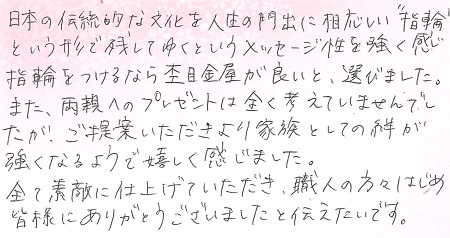 日本の伝統的な文化を人生の門出に相応しい“指輪”
という形で残してゆくというメッセージ性を強く感じ
指輪をつけるなら杢目金屋が良いと、選びました。
また、両親へのプレゼントは全く考えていませんでし
たが、ご提案いただきより家族としての絆が
強くなるようで嬉しく感じました。
全て素敵に仕上げていただき、職人の方々はじめ
皆様にありがとうございましたと伝えたいです。